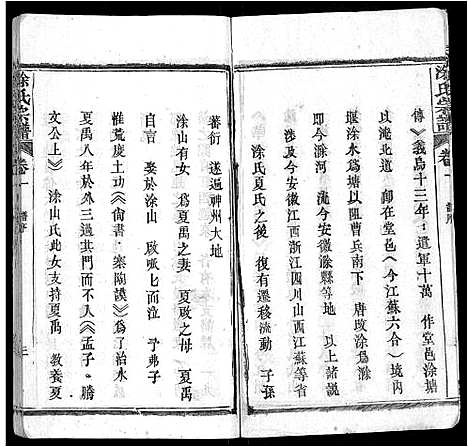 涂氏宗譜 卷一 譜序
傳》義烏十三年：遣軍十萬 作堂邑涂塘
以淹北道 卽在堂邑（今江蘇六合）境內
堰涂水爲塘以阻曹兵南下 唐改涂爲滁
卽今滁河 流今安徽滁縣等地 以上諸說
涉及今安徽江西浙江四川山西江蘇等省
涂氏夏氏之後 復有遷移流動 子孫
蕃衍 遂遍神州大地
涂山有女 爲夏禹之妻 夏啟之母 夏禹
自言 娶於涂山 啟呱上而泣 予弗子
惟荒度土功《尙書·棄陶謨》爲了治水
夏禹八年於外三過其門而不入《孟子·滕
文公上》 涂山氏此女支持夏禹 教養夏
涂氏宗譜 卷一 譜序 三